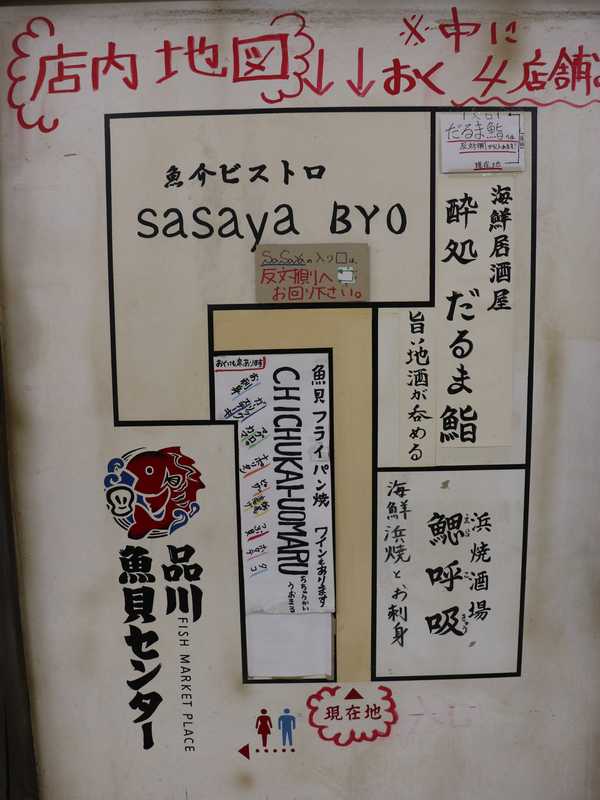 店内地図↓↓
※中に
おく4店舗
魚介ビストロ
sasaya BYO
sasayaの入り口は
反対側へ
お回り下さい。
入口
だるま鮨
反対側
現在地
海鮮居酒屋
酔処 だるま鮨
旨い地酒が呑める
魚貝フライパン焼 ワインもあります
CHICHUKAI-UOMARU
ちちゅうかい
うおまる
お刺身
マグロ
カマ
浜焼酒場
鰓呼吸
えら
こ
きゅう
海鮮浜焼とお刺身
品川
魚貝センター
FISH MARKET PLACE
現在地